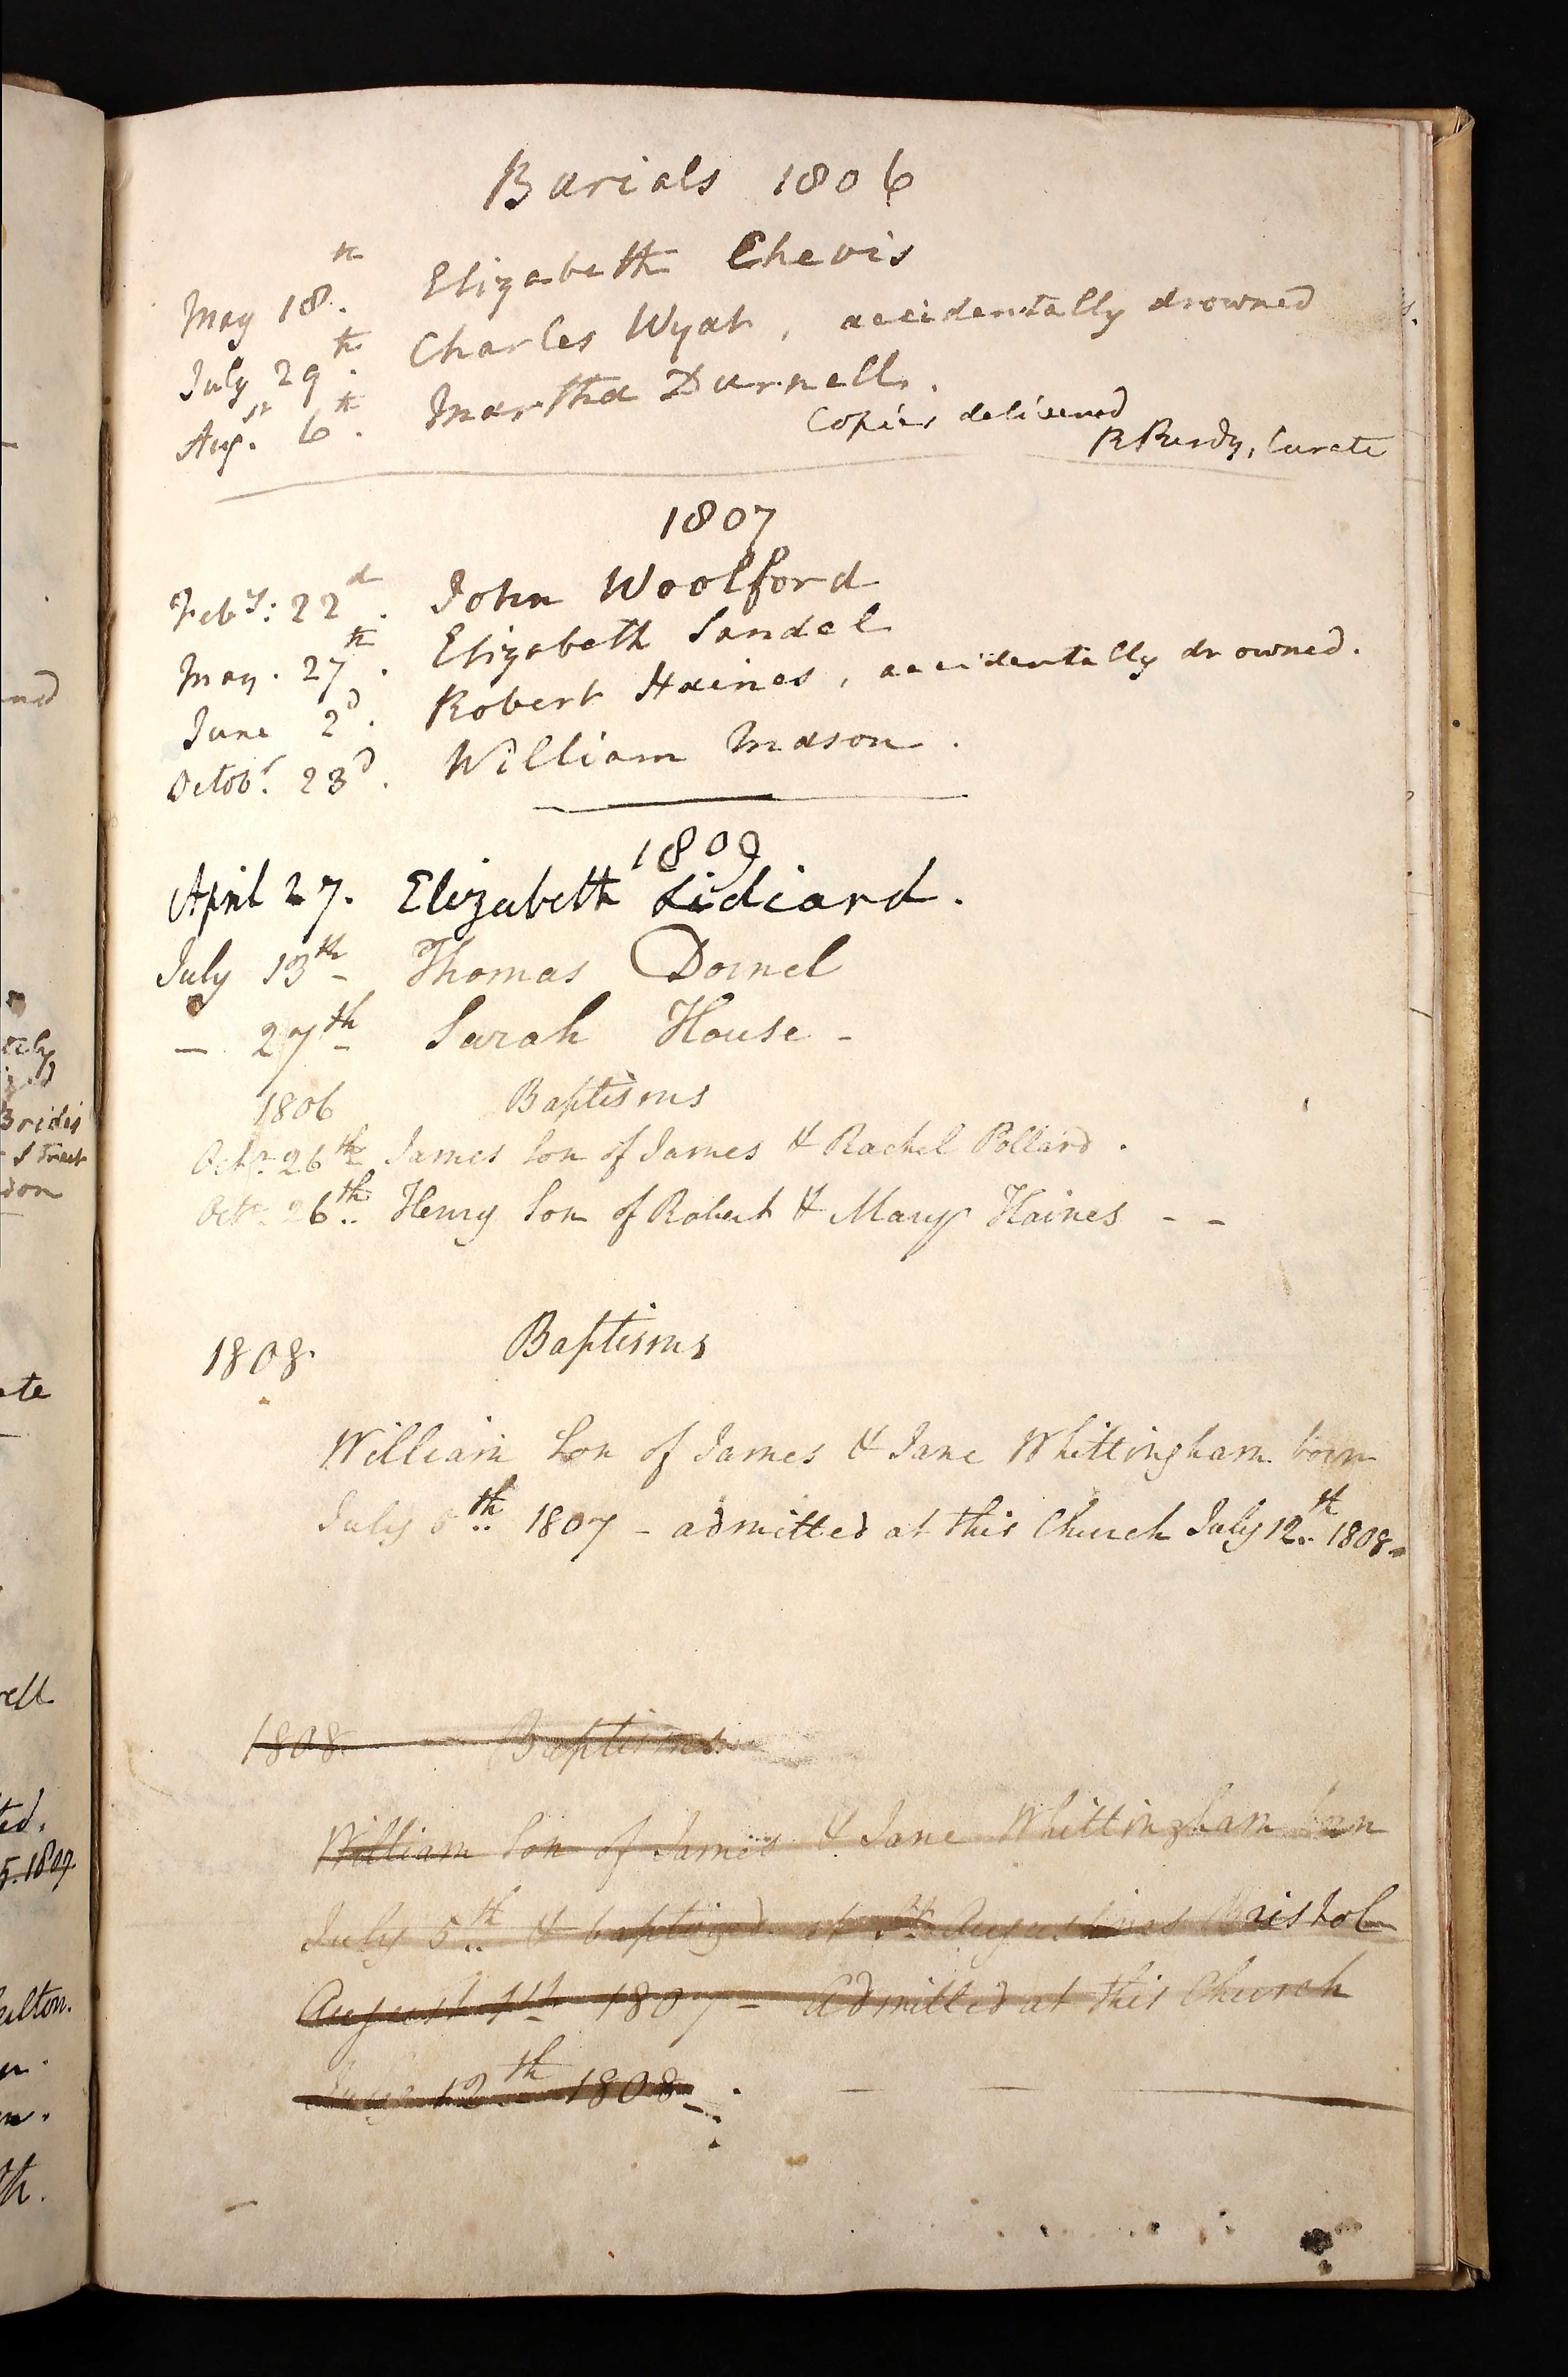 Burials 1806
May 18.th Elizabeth Chevis
July 29th. Charles Wyat, accidentally drowned
Augst. 6th. Martha Darnell.
Copies delivered
R Purdy, Curate
1807
Feby: 22d. John Woolford
May. 27th. Elizabeth Sandel
June 2d. Robert Haines, accidentally drowned.
Octobr. 23d. William Mason.
1809
April 27. Elizabeth Lidiard.
July 13th Thomas
— 27th Sarah House -
1806 Baptisms
Octr. 26th James Son of James & Rachel Pollard.
Octr. 26th.. Henry Son of Robert & Mary Haines - -
1808. Baptisms
William Son of James & Jane Whittingham born
July 5th.. 1807 - admitted at this Church July 12th.. 1808.
1808. Baptisms.
William Son of James & Jane Whittingham born
July 5th.. & baptized at St. Augustines Bristol
August 1807 - Admitted at this Church
12th 1808